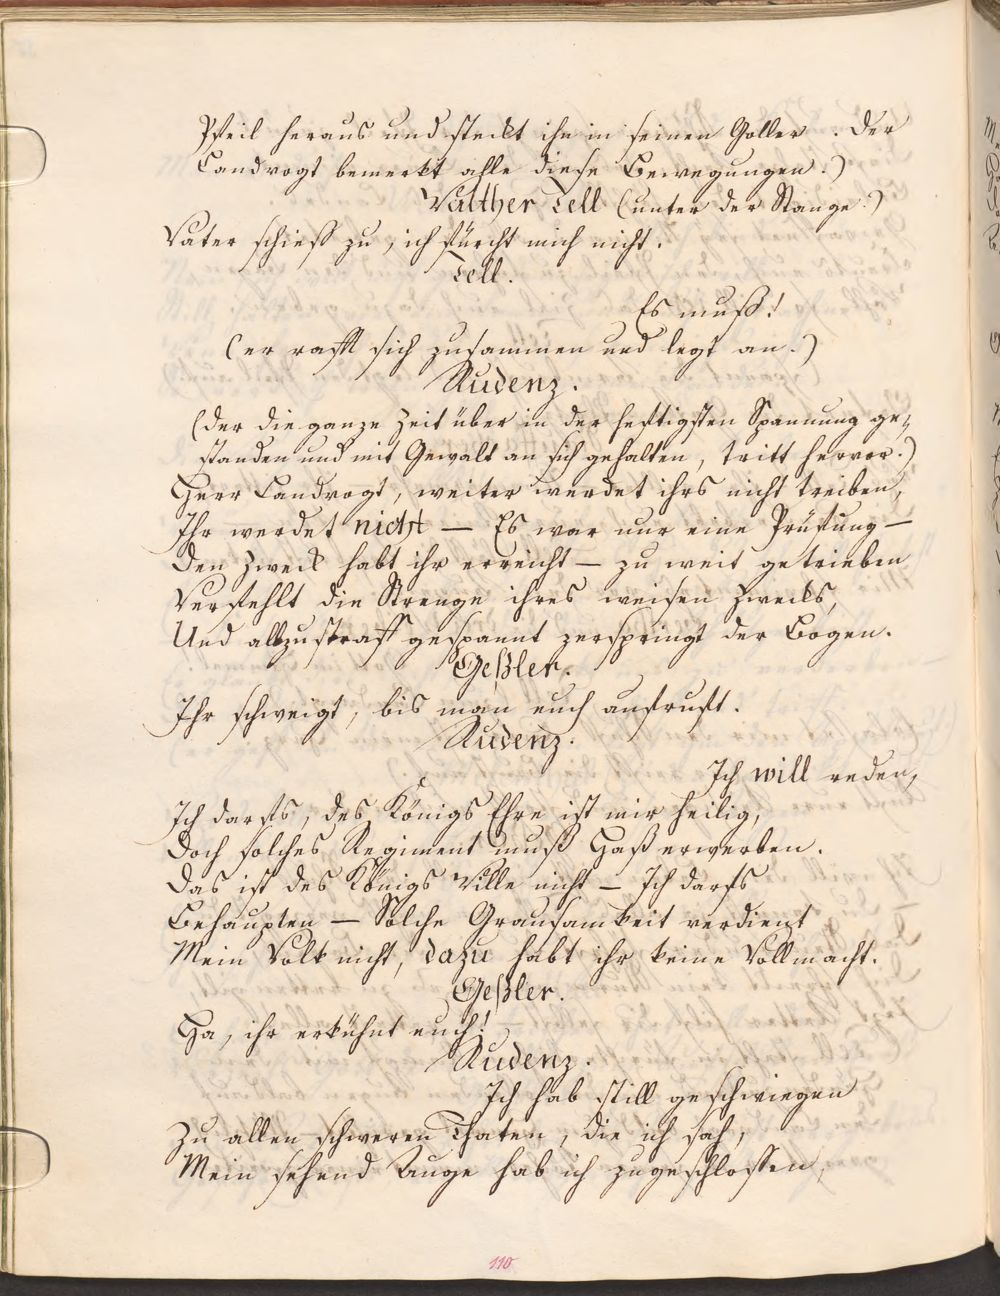 Pfeil heraus und steckt ihn in seinen Goller. Der
Landvogt bemerkt alle diese Bewegungen.)
Walther Tell (unter der Stange.)
Vater schieß zu, ich fürcht mich nicht.
Tell.
Es muß!
(er rafft sich zusammen und legt an.)
Rudenz.
(der die ganze Zeit über in der heftigsten Spannung ge-
standen und mit Gewalt an sich gehalten, tritt hervor.)
Herr Landvogt, weiter werdet ihrs nicht treiben,
Ihr werdet nicht — Es war nur eine Prüfung —
Den Zweck habt ihr erreicht — zu weit getrieben
Verfehlt die Strenge ihres weisen Zwecks,
Und allzustraff gespannt zerspringt der Bogen.
Geßler.
Ihr schweigt, bis man euch aufruft.
Rudenz.
Ich will reden,
Ich darfs, des Königs Ehre ist mir heilig,
Doch solches Regiment muß Haß erwerben.
Das ist des Königs Wille nicht — Ich darfs
Behaupten — Solche Grausamkeit verdient
Mein Volk nicht, dazu habt ihr keine Vollmacht.
Geßler.
Ha, ihr erkühnt euch!
Rudenz.
Ich hab still geschwiegen
Zu allen schweren Thaten, die ich sah,
Mein sehend Auge hab ich zugeschlossen,
110